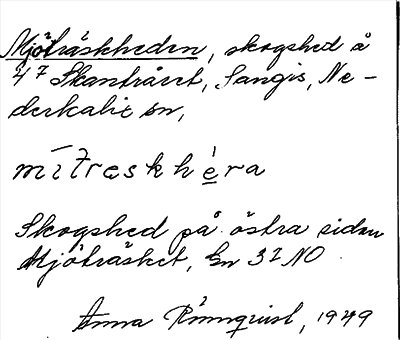 Mjöträskheden, skogshed å
4⁷ Skanträsret, Sangis, Ne-
derkalix sn,
mītræskhèra
Skogshed på östra sidan
Mjöträsket, Gn 3² NO
Anna Rönnquist, 1949